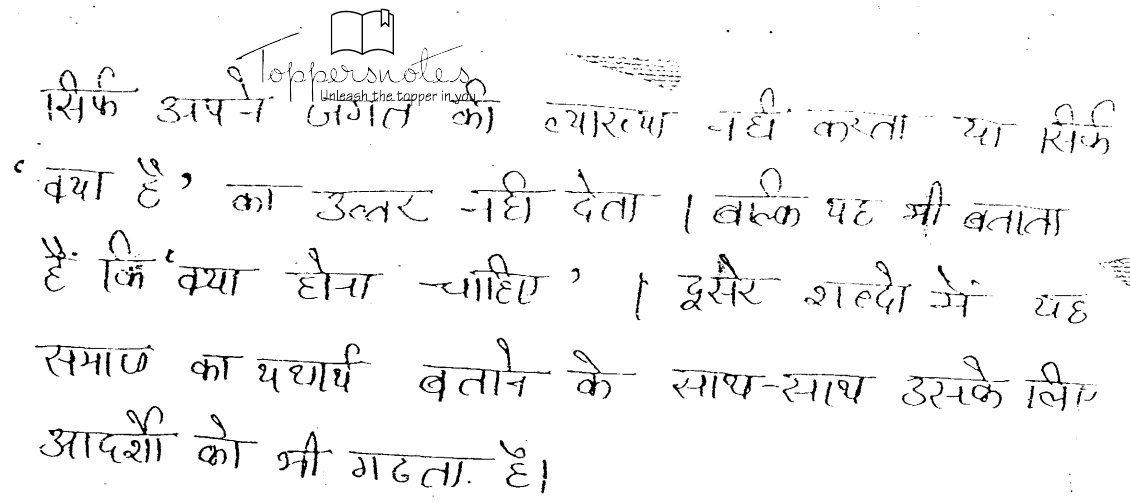 Toppersnotes
Unleash the topper in you
सिर्फ अपने जगत की व्याख्या नहीं करता या सिर्फ
‘क्या है’ का उत्तर नहीं देता । बल्कि यह भी बताता
हैं कि ‘क्या होना चाहिए’ । दूसरे शब्दो में यह
समाज का यथार्थ बताने के साथ-साथ उसके लिए
आदर्शों को भी गढता है।